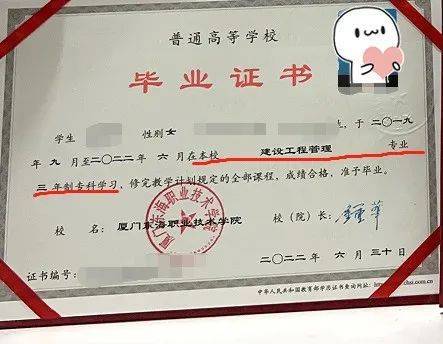 普通高等学校
毕业证书
学生 性别 女 ，于二〇一九
年 九 月至二〇二二年 六 月在本校 建设工程管理 专业
三 年制专科学习，修完教学计划规定的全部课程，成绩合格，准予毕业。
厦门东海职业技术学院
校 名：厦门东海职业技术学院 校（院）长：
二〇二二年 六 月 三十 日
证书编号：
中华人民共和国教育部学历证书查询网址：